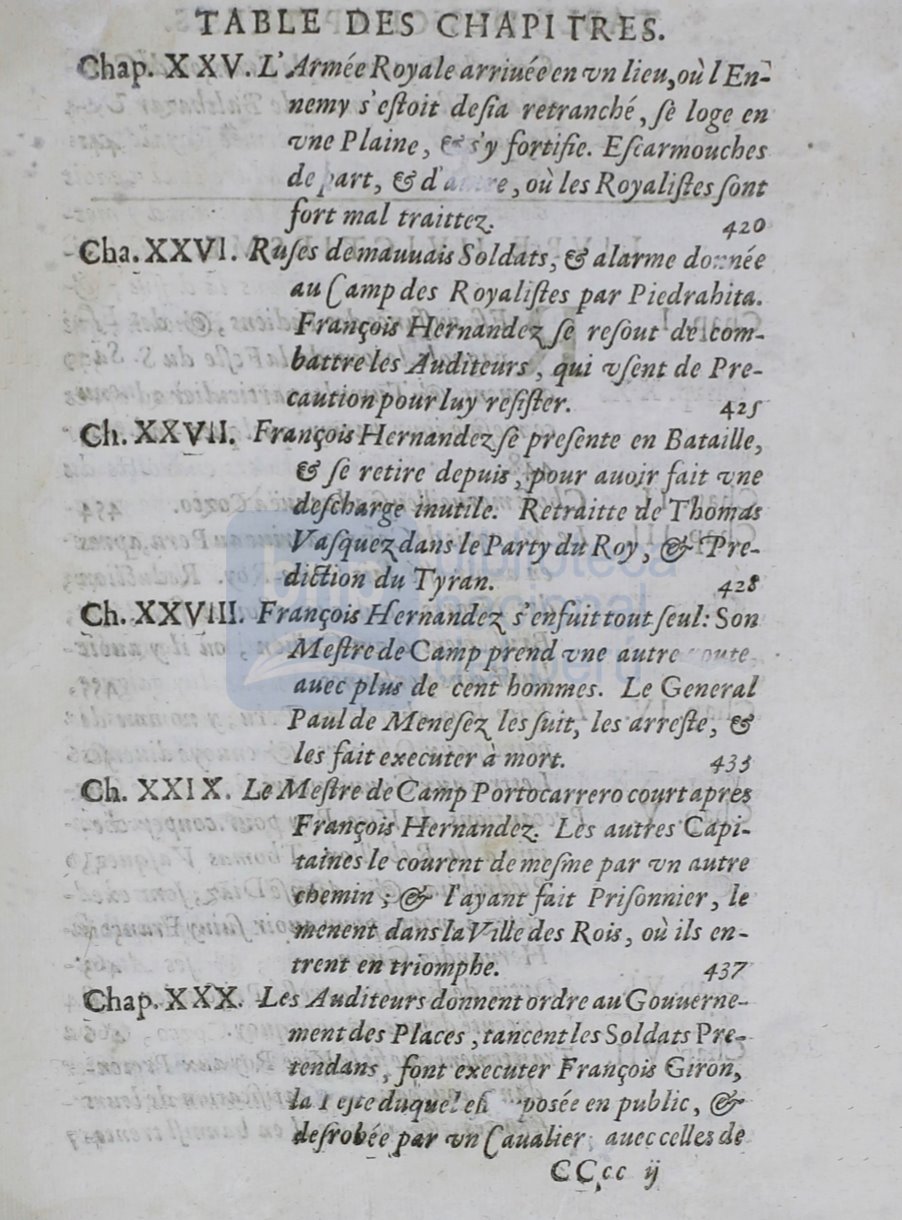 TABLE DES CHAPITRES.
Chap. XXV. L'Armée Royale arriuée en vn lieu, où l'En-
nemy s'eſtoit deſia retranché, ſe loge en
vne Plaine, & s'y fortifie. Eſcarmouches
de part, & d'autre, où les Royaliſtes ſont
fort mal traittez. 420
Cha. XXVI. Ruſes de mauuais Soldats, & alarme donnée
au Camp des Royaliſtes par Piedrahita.
François Hernandez ſe reſout de com-
battre les Auditeurs, qui vſent de Pre-
caution pour luy reſiſter. 425
Ch. XXVII. François Hernandez ſe preſente en Bataille,
& ſe retire depuis, pour auoir fait vne
deſcharge inutile. Retraitte de Thomas
Vaſquez dans le Party du Roy, & Pre-
diction du Tyran. 428
Ch. XXVIII. François Hernandez s'enfuit tout ſeul: Son
Meſtre de Camp prend vne autre route
auec plus de cent hommes. Le General
Paul de Meneſez les ſuit, les arreſte, &
les fait executer à mort. 435
Ch. XXIX. Le Meſtre de Camp Portocarrero court apres
François Hernandez. Les autres Capi-
taines le courent de meſme par vn autre
chemin; & l'ayant fait Priſonnier, le
menent dans la Ville des Rois, où ils en-
trent en triomphe. 437
Chap. XXX. Les Auditeurs donnent ordre au Gouuerne-
ment des Places, tancent les Soldats Pre-
tendans, font executer François Giron,
la Teſte duquel eſt posée en public, &
deſrobée par vn Caualier, auec celles de
CCcc ij
biblioteca
nacional
del perú